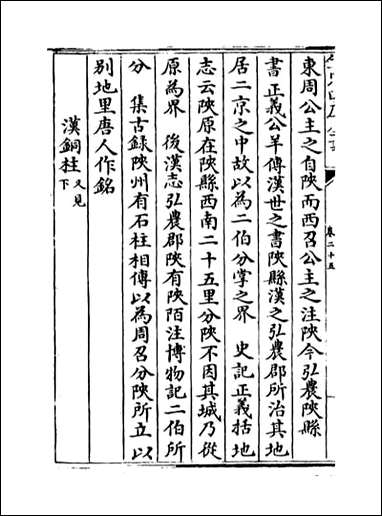 卷二十五
東周公主之自陝而西召公主之注陝今弘農陝縣
書正義公羊傳漢世之書陝縣漢之弘農郡所治其地
居二京之中故以為二伯分掌之界 史記正義括地
志云陝原在陝縣西南二十五里分陝不因其城乃從
原為界 後漢志弘農郡陝有陝陌注博物記二伯所
分 集古録陝州有石柱相傳以為周召分陝所立以
別地里唐人作銘
漢銅柱又見下